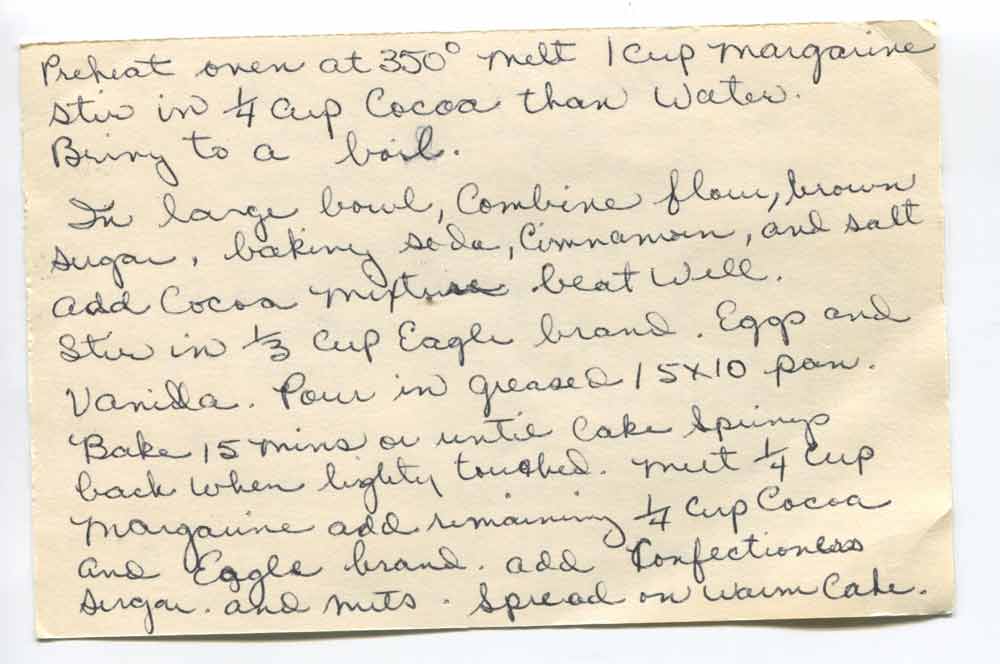 Preheat oven at 350° melt 1 cup margarine
stir in 1/4 cup Cocoa than Water.
Bring to a boil.
In large bowl, Combine flour, brown
sugar, baking soda, Cinnamon, and salt
add Cocoa mixture beat Well.
Stir in 1/3 cup Eagle brand. Eggs and
Vanilla. Pour in greased 15x10 pan.
Bake 15 mins or until Cake Springs
back when lighty touched. melt 1/4 cup
margarine add remaining 1/4 cup Cocoa
and Eagle brand. add Confectioners
sugar. and nuts. Spread on warm Cake.